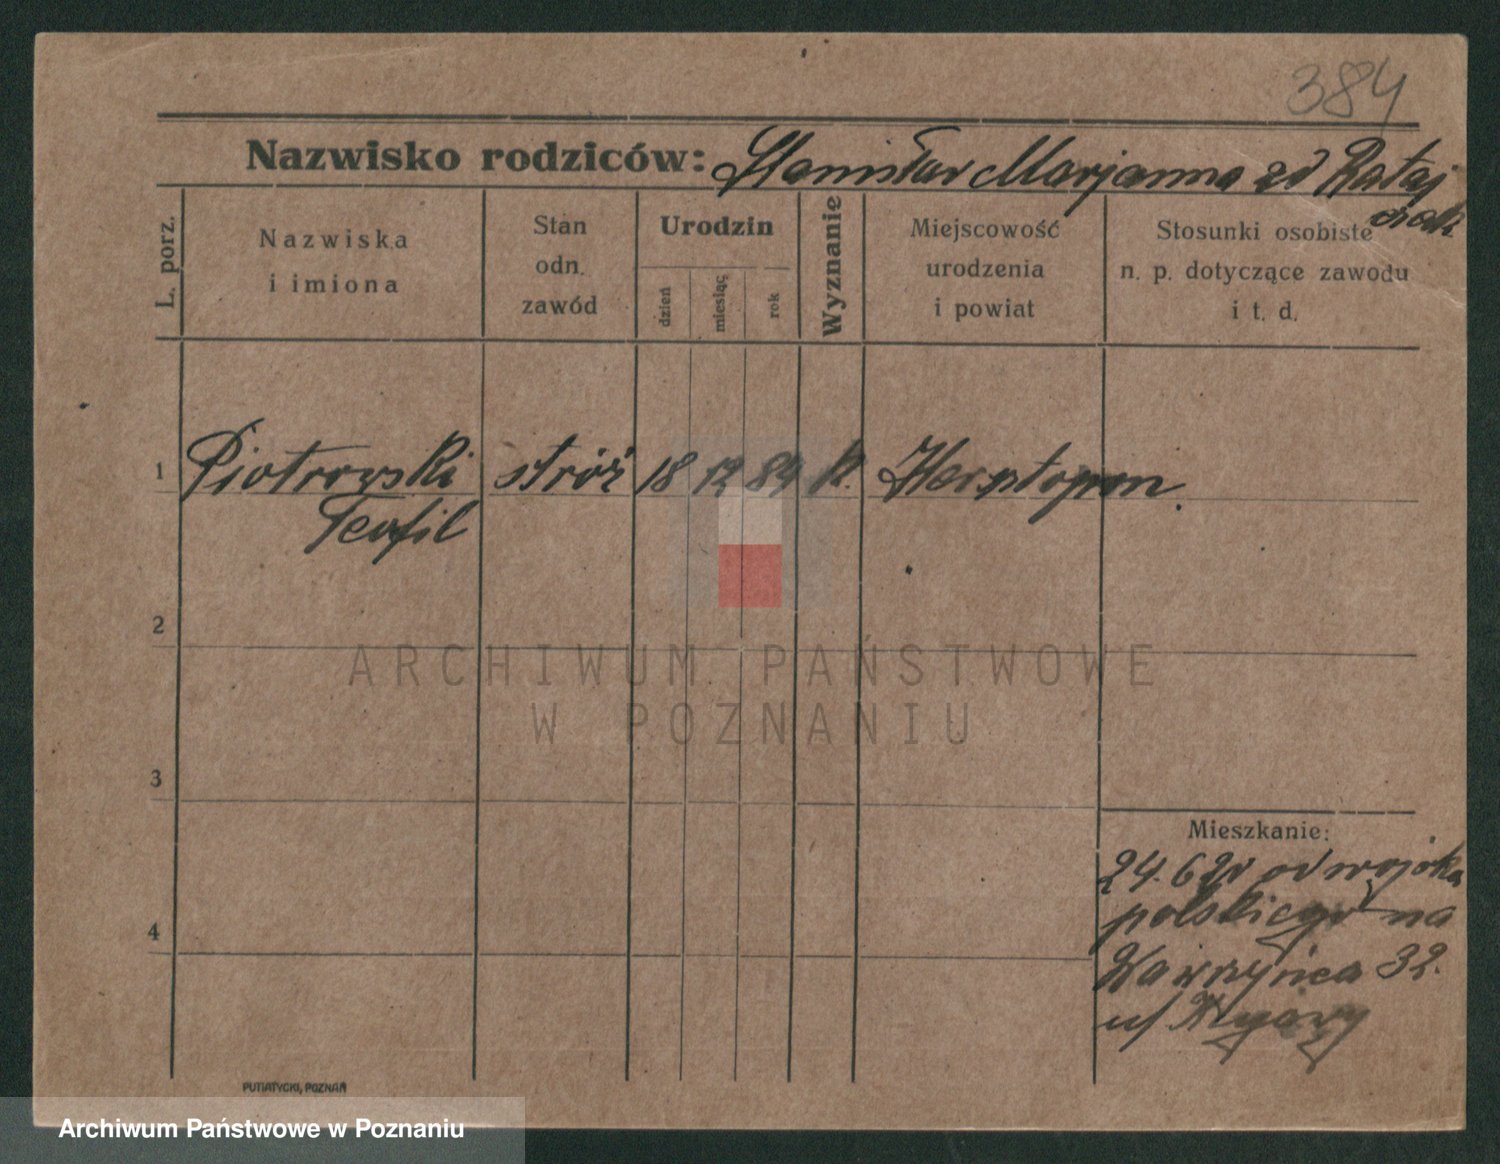 384
Nazwisko rodziców: Stanisław Marjanna zd Rataj
czak
L. porz.
Nazwiska
i imiona
Stan
odn.
zawód
Urodzin
dzień
miesiąc
rok
Wyznanie
Miejscowość
urodzenia
i powiat
Stosunki osobiste
n. p. dotyczące zawodu
i t. d.
1 Piotrowski stróż 18 12 84 k.
Teofil
2
ARCHIWUM PAŃSTWOWE
W POZNANIU
3
Mieszkanie:
24. 6 20 od wojska
polskiego na
Wawrzyńca 32.
u/
4
PUTIATYCKI, POZNAŃ
Archiwum Państwowe w Poznaniu